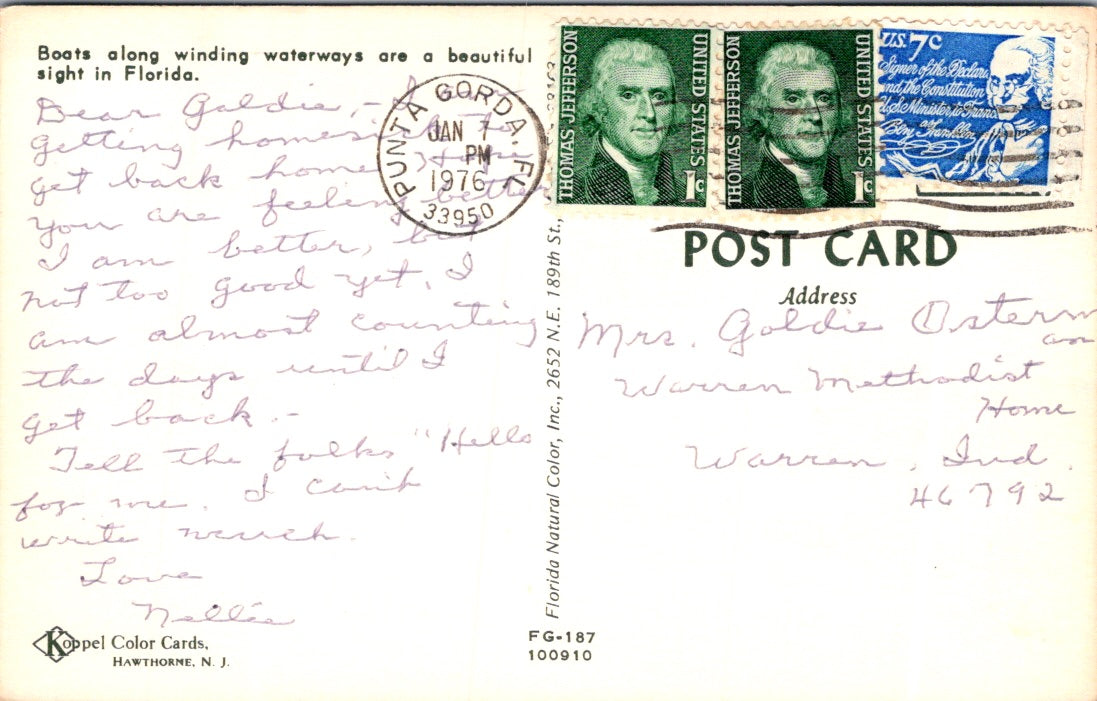 Boats along winding waterways are a beautiful
sight in Florida.
Dear Goldie, -
getting
get back home,
You are feeling better
I am better, but
not too good yet, I
am almost counting
the days until I
get back. -
Tell the folks "Hello
for me. I can't
write much.
Love
Nellie
Koppel Color Cards,
HAWTHORNE, N. J.
PUNTA GORDA, FL
JAN 7
PM
1976
33950
THOMAS JEFFERSON
UNITED STATES
1c
THOMAS JEFFERSON
UNITED STATES
1c
U.S. 7c
Signer of the Declara.
and the Constitution
U.S. Minister to France
Benj Franklin
Florida Natural Color, Inc., 2652 N.E. 189th St.,
FG-187
100910
POST CARD
Address
Mrs. Goldie Osterm
an
Warren Methodist
Home
Warren, Ind.
46792